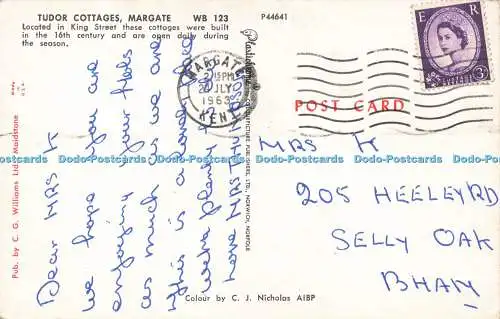 TUDOR COTTAGES, MARGATE WB 123 P44641
Located in King Street these cottages were built
in the 16th century and are open daily during
the season.
MARGATE
2 15 PM
JLY
1963
KENT
E R
POSTAGE
REVENUE
3D
POST CARD
Dear MRS K
we hope you are
enjoying your hols
as much as we are
this is a
we've plenty
love
MRS K
205 HEELEY RD
SELLY OAK
BHAM
Pub. by C. G. Williams Ltd., Maidstone
Colour by C. J. Nicholas AIBP
Dodo-Postcards Dodo-Postcards Dodo-Postcards Dodo-Postcards Dodo-Postcards Dodo-Postcards